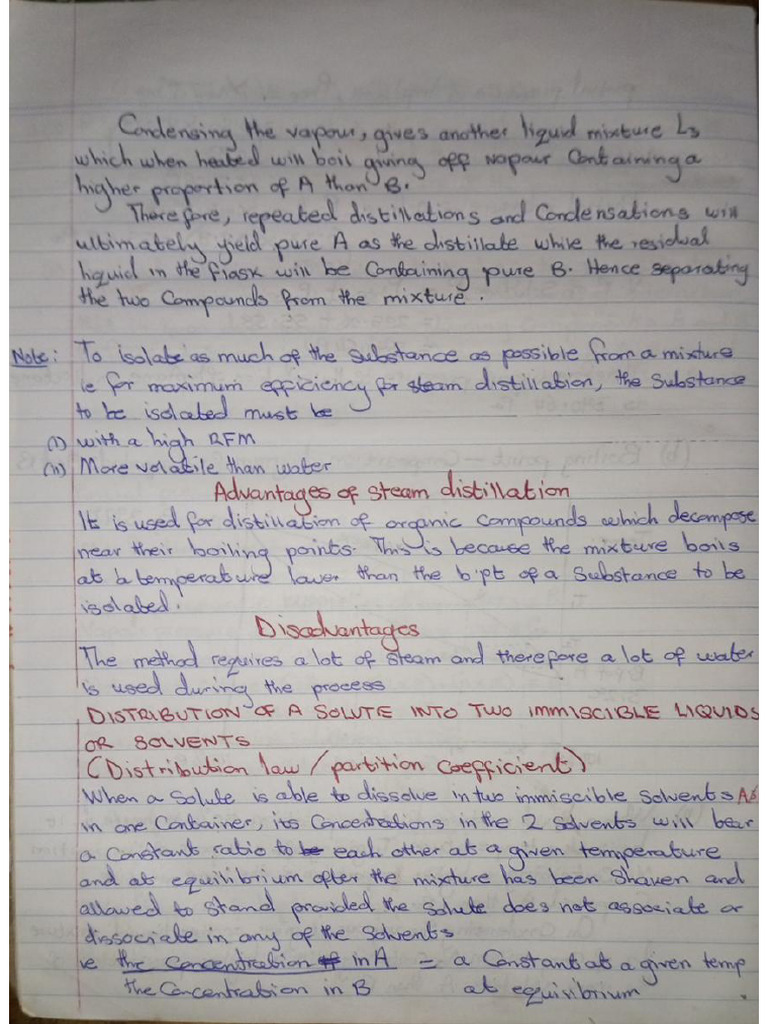 Condensing the vapour, gives another liquid mixture L3
which when heated will boil giving off vapour Containing a
higher proportion of A than B.
Therefore, repeated distillations and Condensations will
ultimately yield pure A as the distillate while the residual
liquid in the flask will be Containing pure B. Hence separating
the two Compounds from the mixture.
Note: To isolate as much of the substance as possible from a mixture
ie for maximum efficiency for steam distillation, the Substance
to be isolated must be
(i) with a high RFM
(ii) More volatile than water
Advantages of steam distillation
It is used for distillation of organic compounds which decompose
near their boiling points. This is because the mixture boils
at a temperature lower than the b.pt of a Substance to be
isolated.
Disadvantages
The method requires a lot of steam and therefore a lot of water
is used during the process
DISTRIBUTION OF A SOLUTE INTO TWO IMMISCIBLE LIQUIDS
OR SOLVENTS
(Distribution law / partition Coefficient)
When a Solute is able to dissolve in two immiscible Solvents
in one Container, its Concentrations in the 2 Solvents will bear
a Constant ratio to each other at a given temperature
and at equilibrium after the mixture has been Shaken and
allowed to Stand provided the Solute does not associate or
dissociate in any of the Solvents
ie the concentration in A = a Constant at a given temp
the Concentration in B at equilibrium